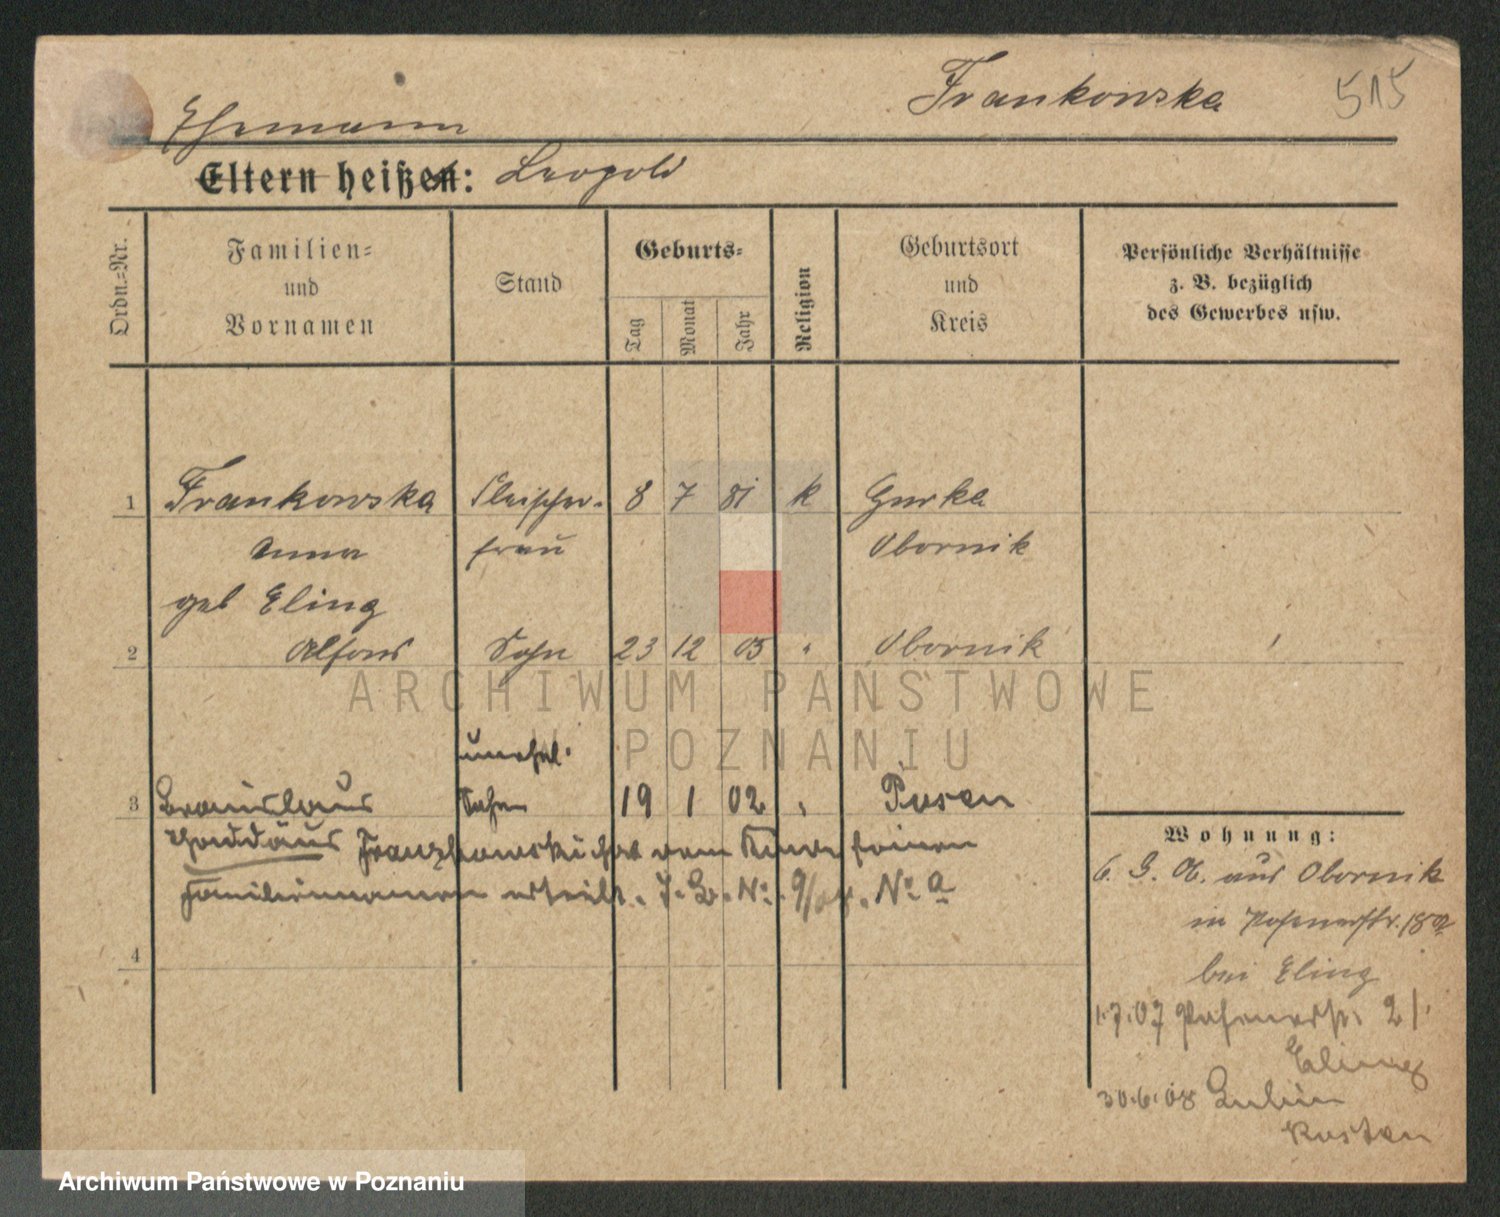 Frankowska 515
Ehemann
Eltern heißen: Leopold
Ordn.=Nr.
Familien=
und
Vornamen
Stand
Geburts=
Tag
Monat
Jahr
Religion
Geburtsort
und
Kreis
Persönliche Verhältnisse
z. B. bezüglich
des Gewerbes usw.
1 Frankowska Fleischer- 8 7 81 k Gurka
Anna frau Obornik
geb Eling
2 Alfons Sohn 23 12 05 " Obornik
ARCHIWUM PAŃSTWOWE
W POZNANIU
unehel.
3 Bronislaus Sohn 19 1 02 " Posen
Thaddäus Franzkowski hat dem Kinde seinen
Familiennamen erteilt. J. B. No. 9/ No a
4
Wohnung:
6. G. Ob. aus Obornik
in Posenerstr. 18a
bei Eling
1.7.07 Posenerstr. 21
Eling
30.6.08 Lubin
Kosten
Archiwum Państwowe w Poznaniu